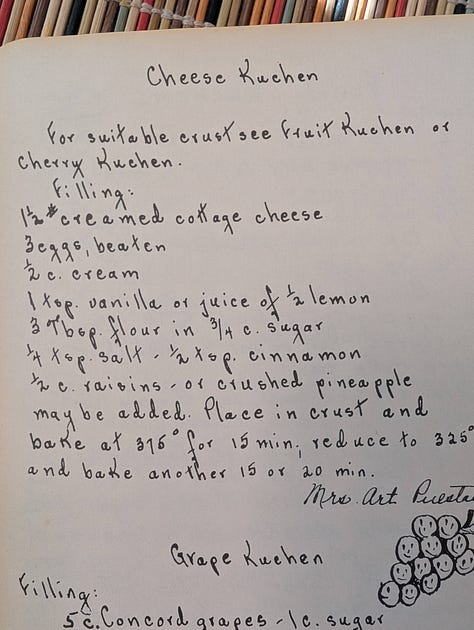 Cheese Kuchen
For suitable crust see Fruit Kuchen or
Cherry Kuchen.
Filling:
1½ # creamed cottage cheese
3 eggs, beaten
½ c. cream
1 tsp. vanilla or juice of ½ lemon
3 Tbsp. flour in 3/4 c. sugar
¼ tsp. salt - ½ tsp. cinnamon
½ c. raisins - or crushed pineapple
may be added. Place in crust and
bake at 375° for 15 min; reduce to 325°
and bake another 15 or 20 min.
Mrs. Art
Grape Kuchen
Filling:
5 c. Concord grapes - 1 c. sugar